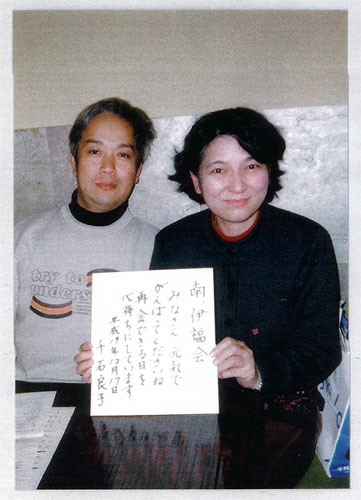 try to
underst
南伊福会
みなさん元気で
がんばってくださいね
再会できる日を
心待ちにしています
平成19年12月17日
千石良子